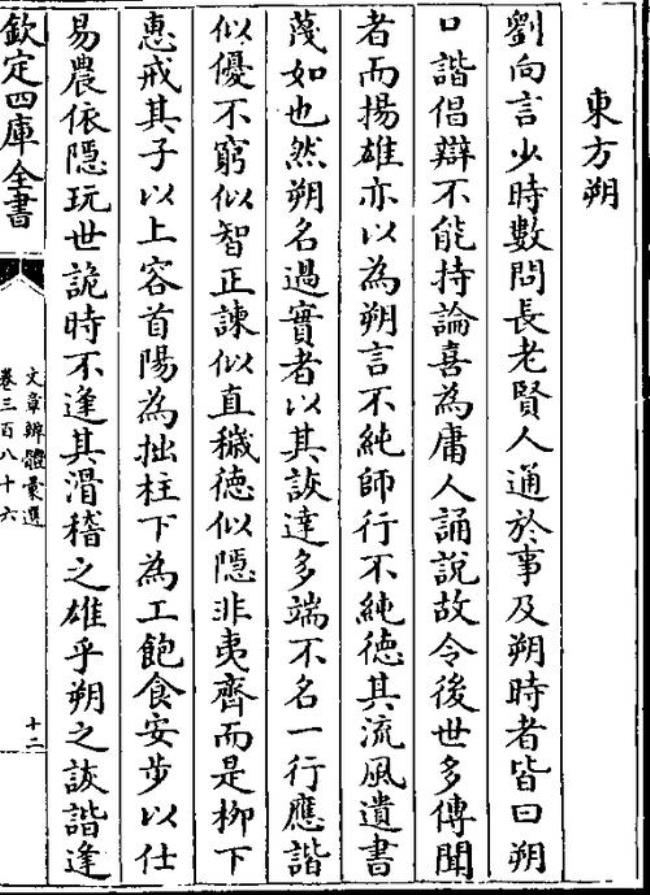 東方朔
劉向言少時數問長老賢人通於事及朔時者皆曰朔
口諧倡辯不能持論喜為庸人誦說故令後世多傳聞
者而揚雄亦以為朔言不純師行不純徳其流風遺書
蔑如也然朔名過實者以其詼達多端不名一行應諧
似優不窮似智正諫似直穢徳似隠非夷齊而是栁下
惠戒其子以上容首陽為拙柱下為工飽食安步以仕
易農依隠玩世詭時不逢其滑稽之雄乎朔之詼諧逢
欽定四庫全書
文章辨體彙選
卷三百八十六
十二